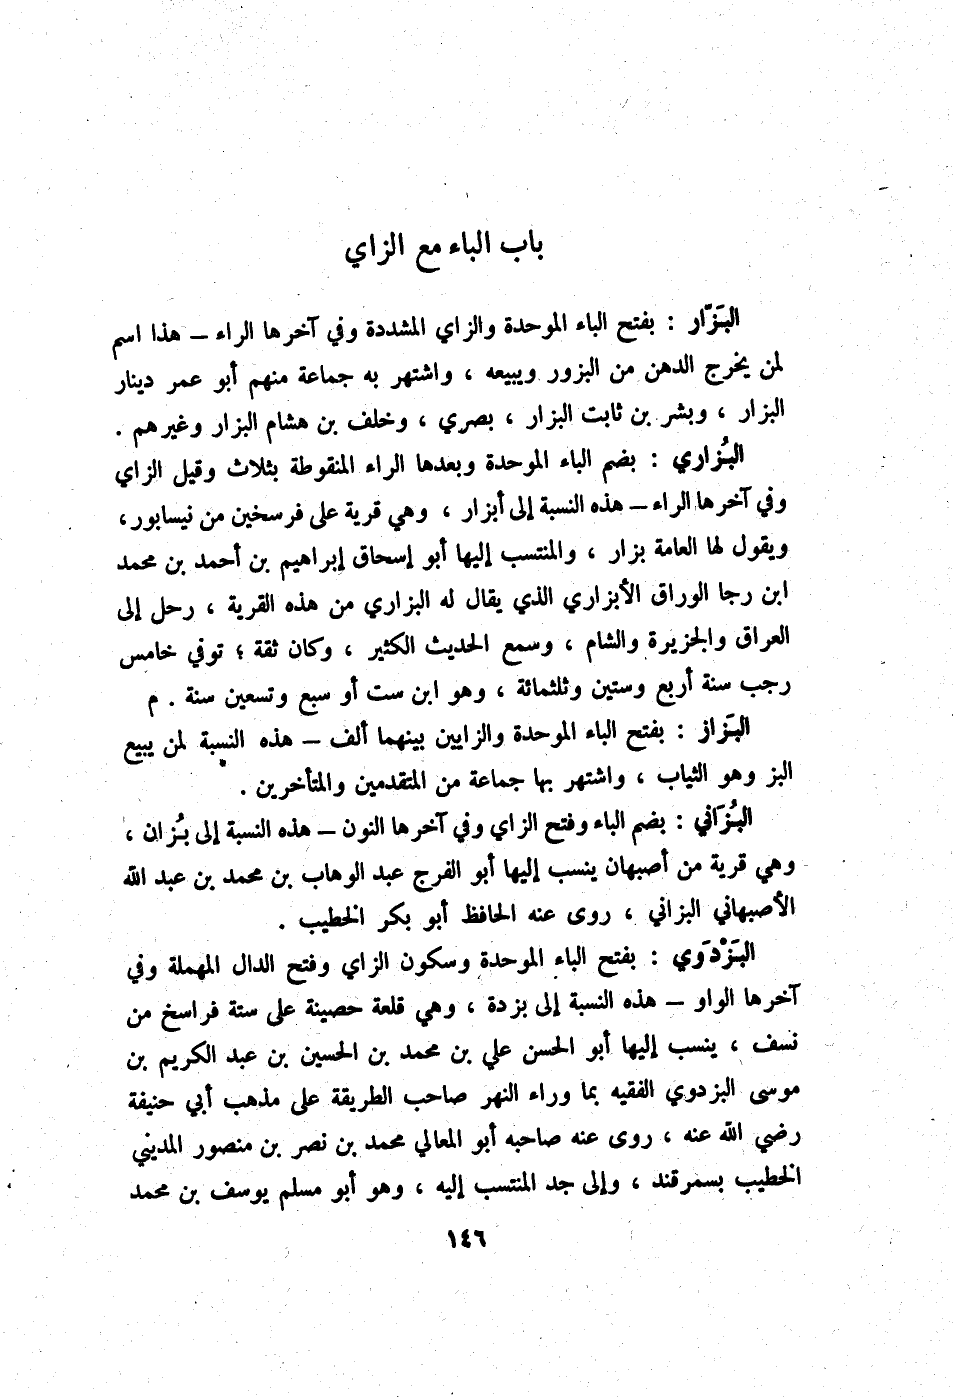 باب الباء مع الزاي
البَزّار : بفتح الباء الموحدة والزاي المشددة وفي آخرها الراء ــ هذا اسم
لمن يخرج الدهن من البزور ويبيعه ، واشتهر به جماعة منهم أبو عمر دينار
البزار ، وبشر بن ثابت البزار ، بصري ، وخلف بن هشام البزار وغيرهم .
البُزاري : بضم الباء الموحدة وبعدها الراء المنقوطة بثلاث وقيل الزاي
وفي آخرها الراء ــ هذه النسبة إلى أبزار ، وهي قرية على فرسخين من نيسابور ،
ويقول لها العامة بزار ، والمنتسب إليها أبو إسحاق إبراهيم بن أحمد بن محمد
ابن رجا الوراق الأبزاري الذي يقال له البزاري من هذه القرية ، رحل إلى
العراق والجزيرة والشام ، وسمع الحديث الكثير ، وكان ثقة ؛ توفي خامس
رجب سنة أربع وستين وثلثمائة ، وهو ابن ست أو سبع وتسعين سنة . م
البَزاز : بفتح الباء الموحدة والزايين بينهما ألف ــ هذه النسبة لمن يبيع
البز وهو الثياب ، واشتهر بها جماعة من المتقدمين والمتأخرين .
البُزَاني : بضم الباء وفتح الزاي وفي آخرها النون ــ هذه النسبة إلى بُزان ،
وهي قرية من أصبهان ينسب إليها أبو الفرج عبد الوهاب بن محمد بن عبد الله
الأصبهاني البزاني ، روى عنه الحافظ أبو بكر الخطيب .
البَزْدَوي : بفتح الباء الموحدة وسكون الزاي وفتح الدال المهملة وفي
آخرها الواو ــ هذه النسبة إلى بزدة ، وهي قلعة حصينة على ستة فراسخ من
نسف ، ينسب إليها أبو الحسن علي بن محمد بن الحسين بن عبد الكريم بن
موسى البزدوي الفقيه بما وراء النهر صاحب الطريقة على مذهب أبي حنيفة
رضي الله عنه ، روى عنه صاحبه أبو المعالي محمد بن نصر بن منصور المديني
الخطيب بسمرقند ، وإلى جد المنتسب إليه ، وهو أبو مسلم يوسف بن محمد
١٤٦